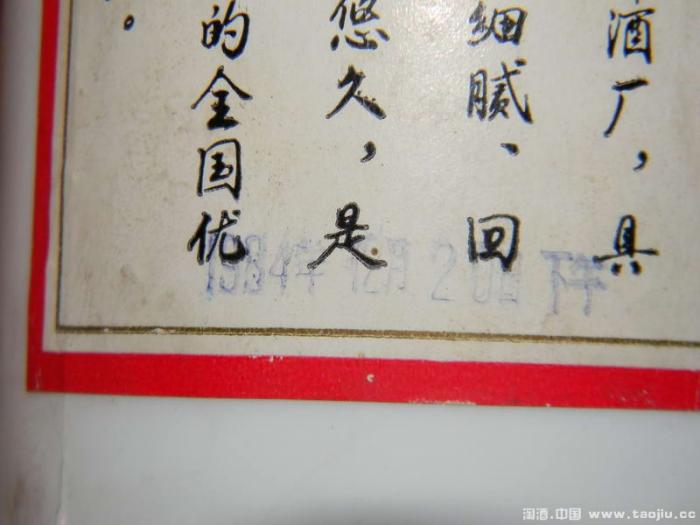 酒厂，具
细腻、回
悠久，是
的全国优
。
1984年12月20日下午
淘酒.中国 www.taojiu.cc